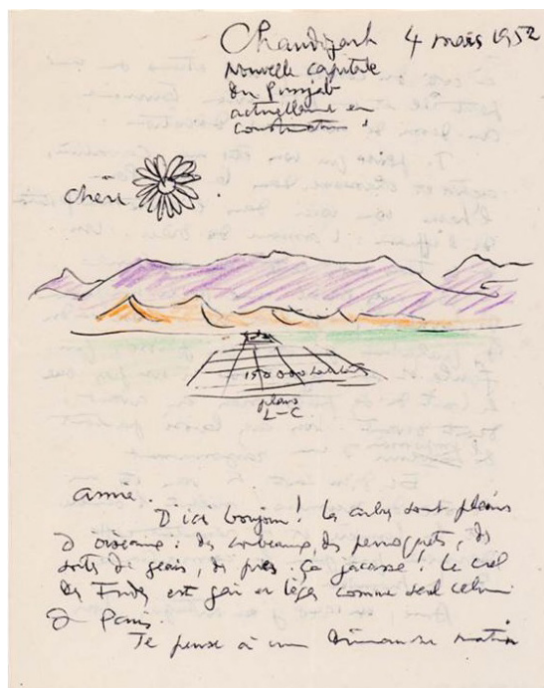 Chandigarh 4 mars 1952
Nouvelle capitale
du Punjab
actuellement en
construction !
Chéri
150 000 habitants
plans
L-C
amie.
D'ici bonjour ! les arbres sont pleins
d'oiseaux : des corbeaux, des perroquets, des
sortes de geais, de pies. ça jacasse ! Le ciel
des Indes est gai et léger comme seul celui
de Paris.
Je pense à un dimanche matin